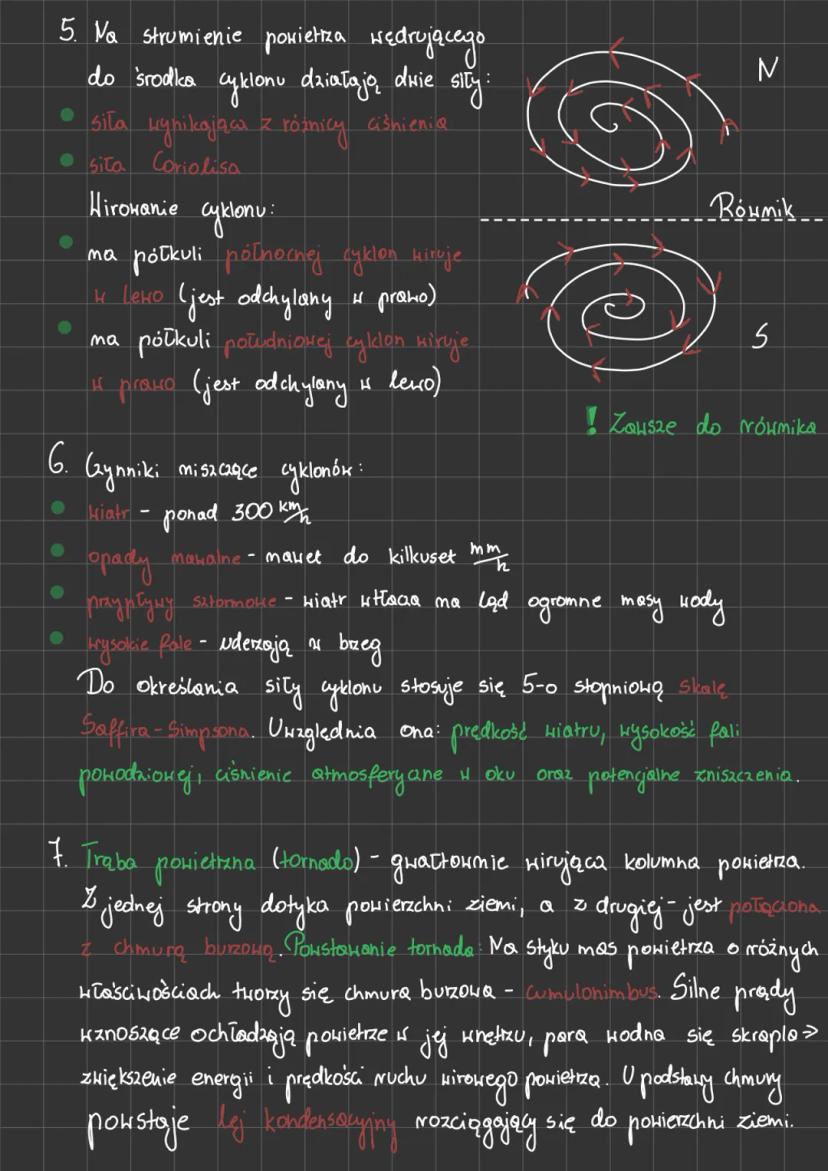 5. Na strumienie powietrza wędrującego
do środka cyklonu działają dwie siły:
siła wynikająca z różnicy ciśnienia
siła Coriolisa
Wirowanie cyklonu:
na półkuli północnej cyklon wiruje
w lewo (jest odchylany w prawo)
na półkuli południowej cyklon wiruje
w prawo (jest odchylany w lewo)
N
Równik
S
! Zawsze do równika
6. Czynniki niszczące cyklonów:
wiatr - ponad 300 km/h
opady nawalne - nawet do kilkuset mm/h
przypływy sztormowe - wiatr wtłacza na ląd ogromne masy wody
wysokie fale - uderzają w brzeg
Do określania siły cyklonu stosuje się 5-o stopniową skalę
Saffira-Simpsona. Uwzględnia ona: prędkość wiatru, wysokość fali
powodziowej, ciśnienie atmosferyczne w oku oraz potencjalne zniszczenia.
7. Trąba powietrzna (tornado) - gwałtownie wirująca kolumna powietrza.
Z jednej strony dotyka powierzchni ziemi, a z drugiej - jest połączona
z chmurą burzową. Powstawanie tornada: Na styku mas powietrza o różnych
właściwościach tworzy się chmura burzowa - cumulonimbus. Silne prądy
wznoszące ochładzają powietrze w jej wnętrzu, para wodna się skrapla =>
zwiększenie energii i prędkości ruchu wirowego powietrza. U podstawy chmury
powstaje lej kondensacyjny rozciągający się do powierzchni ziemi.